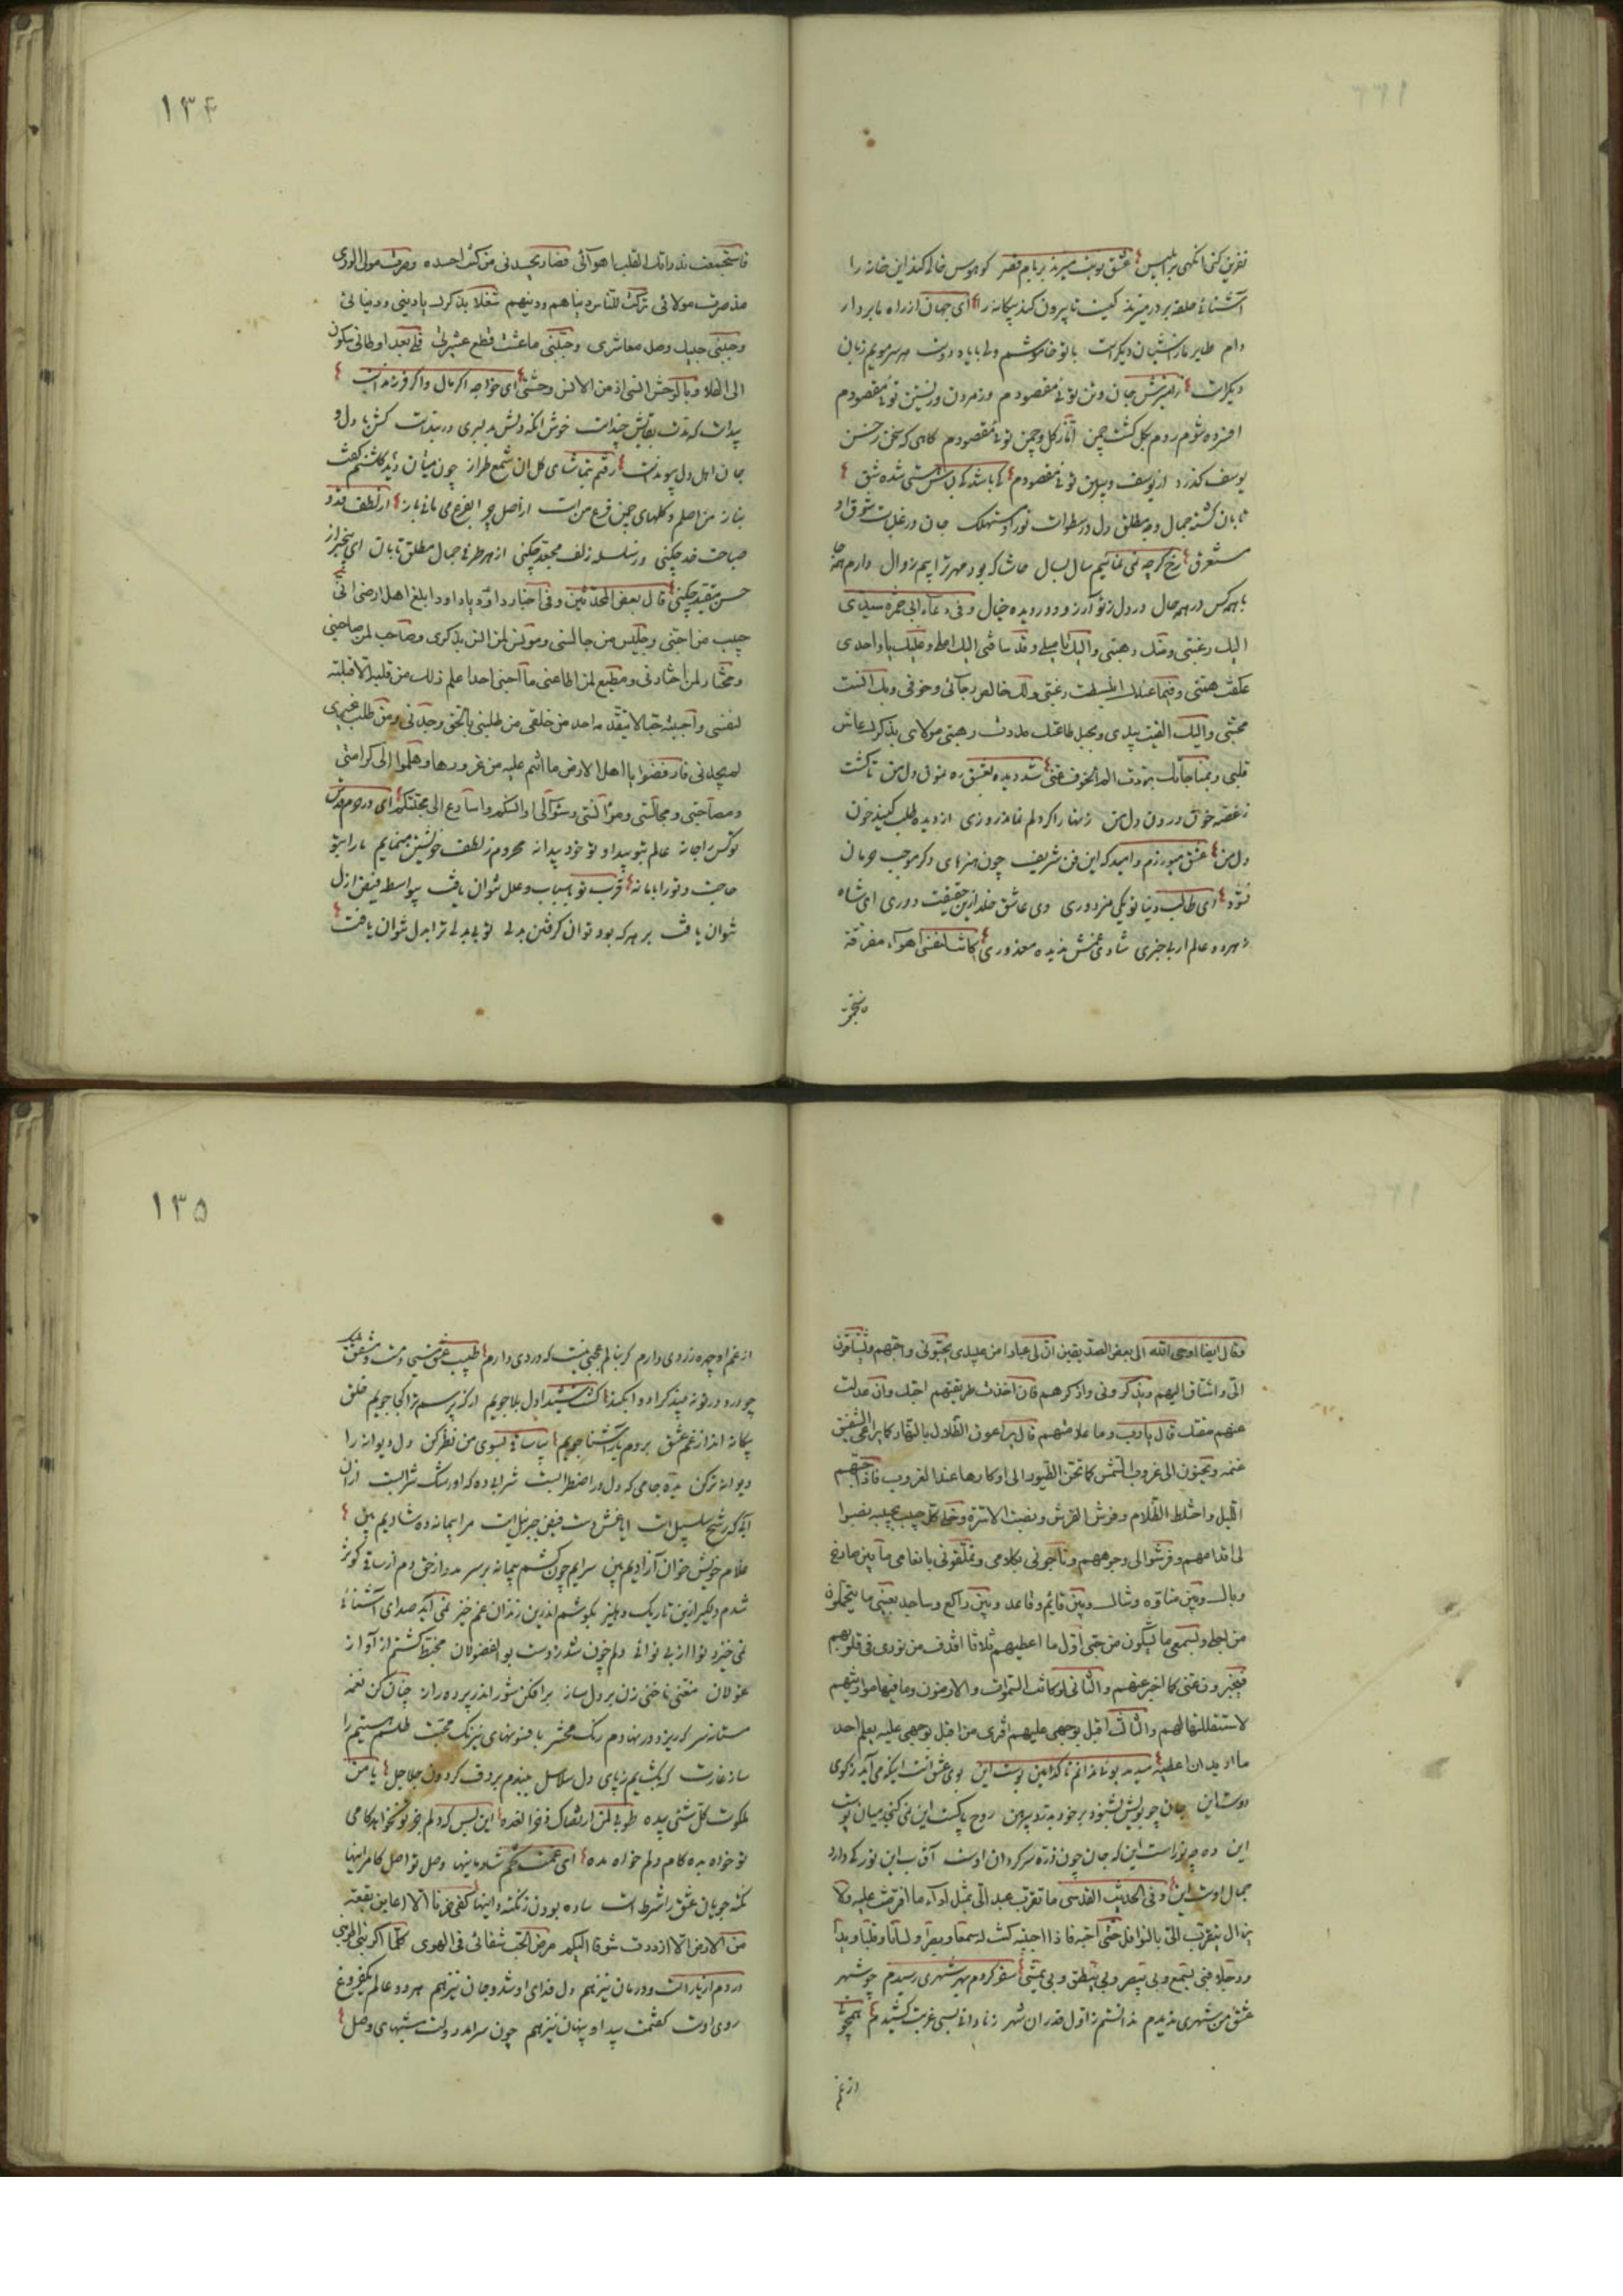 نفرین کنی انگهی بر ابلیس عشق نوبت میزند بر بام قصر کو هوس خالی کند این خانه را
آشنائی حلقه بر در میزند کیست تا بیرون کند بیکانه را ای جهان از راه ما بردار
دام طایر ما ز آشیان دیکرست با تو خاموشم ولی با یاد دوست هر سر مویم زبان
دیکرست ز آمیزش جان و تن توئی مقصودم وز مردن و زیستن توئی مقصودم
افزده شوم روم بکل کشت چمن ز کل و چمن توئی مقصودم کاهی که سخن ز حسن
یوسف کذرد از یوسف و پیرهن توئی مقصودم
تابان کشته جمال وجه مطلق دل در سطوات نور او مستهلک جان در غلبات شوق او
مستغرق رخ کرچه نمی نمائیم سال بسال حاشا که بود مهر ترا بیم زوال دارم همه جا
با همه کس در همه حال در دل ز تو آرزو و در دیده خیال وفی دعاء ابی حمزه سیدی
الیک رغبتی ومنک رهبتی والیک تأمیلی وقد ساقنی الیک املی وعلیک یا واحدی
عکفت همتی وفیما عندک انبسطت رغبتی ولک خالص رجائی وخوفی وبک انست
محبتی والیک القیت بیدی وبحبل طاعتک مددت رهبتی مولای بذکرک عاش
قلبی وبمناجاتک بردت الم الخوف عنی شد دیده بعشق ره نمون دل من تا کشت
ز غصه خون درون دل من زنهار اکر دلم نماند روزی از دیده طلب کنید خون
دل من عشق میورزم و امید که این فن شریف چون هنرهای دکر موجب حرمان
نشود ای طالب دنیا تو یکی مزدوری وی عاشق خلد ازین حقیقت دوری ای شاد
بهر دو عالم از بی خبری شادی غمش ندیده معذوری کانت لنفسی اهواء مفرقة
فاستجمعت
۱۳۴
فاستجمعت مذ راتک القلب اهوائی فصار یحسدنی من کنت احسده وصرت مولی الوری
مذ صرت مولائی ترکت للناس دنیاهم ودینهم شغلا بذکرک یا دینی ودنیائی
وحببنی حبک وصل معاشری وحببنی ما عشت قطع عشیرتی
ای خواجه اکر مال واکر فرزندست
پیداست که مدت بقایش چندست خوش آنکه دلش بدلبری در بندست کش با دل و
جان اهل دل پیوندست رفتم بتماشای کل آن شمع طراز چون میان دید کلشنم کفت
بناز من اصلم و کلهای چمن فرع من است از اصل چرا بفرع می مانی باز از لطف قد و
صباحت خد چکنی وز سلسله زلف مجعد چکنی از هر طرفی جمال مطلق تابان ای بیخبر از
حسن مقید چکنی قال بعض المحدثین وفی اخبار داود یا داود ابلغ اهل ارضی انی
حبیب من احبنی وجلیس من جالسنی ومونس لمن انس بذکری وصاحب لمن صاحبنی
ومختار لمن اختارنی ومطیع لمن اطاعنی ما احبنی احدا علم ذلک من قلبه الا قبلته
لنفسی واحببته حبا لا یتقدمه احد من خلقی من طلبنی بالحق وجدنی ومن طلب غیری
لم یجدنی فارفضوا یا اهل الارض ما انتم علیه من غرورها وهلموا الی کرامتی
ومصاحبتی ومجالستی ومؤانستی وسارع الی محبتکم
عالم بتو پیدا و تو خود پیدا نه محروم ز لطف خویشتن مینمایم ما را بتو
حاجت و تو را با ما نه قرب تو باسباب و علل نتوان یافت بیواسطه فیض ازل
نتوان یافت بر هر که بود توان کرفتن بدلی تو بی بدلی ترا بدل نتوان یافت
وقال ایضا اوحی الله الی بعض الصدیقین ان لی عبادا من عبیدی یحبونی واحبهم ویشتاقون
الی واشتاق الیهم ویذکرونی واذکرهم فان اخذت طریقتهم احبک وان عدلت
عنهم مقتک قال یا رب وما علامتهم قال یراعون الظلال بالنهار کما یراعی الشفیق
غنمه ویحنون الی غروب الشمس کما تحن الطیور الی اوکارها عند الغروب فاذا جنهم
اللیل واختلط الظلام وفرش الفرش ونصبت الاسرة وخلی کل حبیب بحبیبه نصبوا
لی اقدامهم وفرشوا لی وجوههم وناجونی بکلامی وتملقونی بانعامی ما بین صارخ
وباک وبین متاوه وشاک وبین قائم وقاعد وبین راکع وساجد بعینی ما یتحملون
من اجلی وبسمعی ما یشکون من حبی اول ما اعطیهم ثلاثا اقذف من نوری فی قلوبهم
فیخبرون عنی کما اخبر عنهم والثانی لو کانت السموات والارضون وما فیها موازینهم
لاستقللتها لهم والثالث اقبل بوجهی علیهم افتری من اقبل بوجهی علیه یعلم احد
ما ارید ان اعطیه میدمد بوئی ندانم تا کدامین بوست این بوی عشق است اینکه می آید ز کوی
دوست این جان چو بویش بشنود بر خود بدرد پیرهن روح پاکست این نمی کنجد میان پوست
این وه چه نوراست این که جان چون ذره سرکردان اوست آفتاب این نور کی دارد
جمال اوست این وفی الحدیث القدسی ما تقرب عبد الی بمثل اداء ما افترضت علیه ولا
یزال یتقرب الی بالنوافل حتی احبه فاذا احببته کنت له سمعا وبصرا ولسانا وقلبا ویدا
ورجلا فبی یسمع وبی یبصر وبی ینطق وبی یمشی سفر کردم بهر شهری رسیدم چو شهر
عشق من شهری ندیدم ندانستم ز اول قدر آن شهر ز نادانی بسی غربت کشیدم
از غم
۱۳۵
از غم او چهره زردی دارم کر بنالم عجبی نیست که دردی دارم طبیب عشق مسیحا دمست و مشفق لیک
چو درد در تو نه بیند کرا دوا بکند
بیکانه اند از غم عشق بروم یار آشنا جویم بیا ساقی بسوی من نظر کن دل دیوانه را
دیوانه تر کن بده جامی که دل در اضطرابست شرابی ده که او رشک شرابست از آن
آبی که رشح سلسبیل است ایاغش دست فیض جبرئیل است مرا پیمانه ده شادیم بین
غلام خویش خوان آزادیم بین سرایم چون کشم پیمانه بر سر مدد از حق دم از ساقی کوثر
شدم دلکیر ازین تاریک دهلیز بکوشم اندرین زندان غم خیز نمی آید صدای آشنائی
نمی خیزد نوا از بی نوائی دلم خون شد ز دست بوالفضولان مخبط کشتم از آواز
غولان مغنی ناخنی زن بر دل ساز برافکن شور اندر پرده راز چنان کن نغمه
مستانه سر که ریزد در نهادم رنک محشر با فسونهای نیرنک محبت طلسم هستیم را
ساز غارت که بکشایم ز پای دل سلاسل ببندم بر دف کردون جلاجل یا من
ملکوت کل شیء بیده طوبی لمن ارتضاک ذخرا لغده این بس که دلم جز تو نخواهد کامی
تو خواه بده کام دلم خواه مده ای غمت تخم شادمانیها وصل تو اصل کامرانیها
نکته جویان عشق را شرط است ساده بودن ز نکته دانیها
من الارض الا ازددت شوقا الیکم مرض الحب شفائی فی الهوی کلما اکربنی اطربنی
دردم از یارست و درمان نیز هم دل فدای او شد و جان نیز هم هر دو عالم یک فروغ
روی اوست کفتمت پیدا و پنهان نیز هم چون سرآمد دولت شبهای وصل